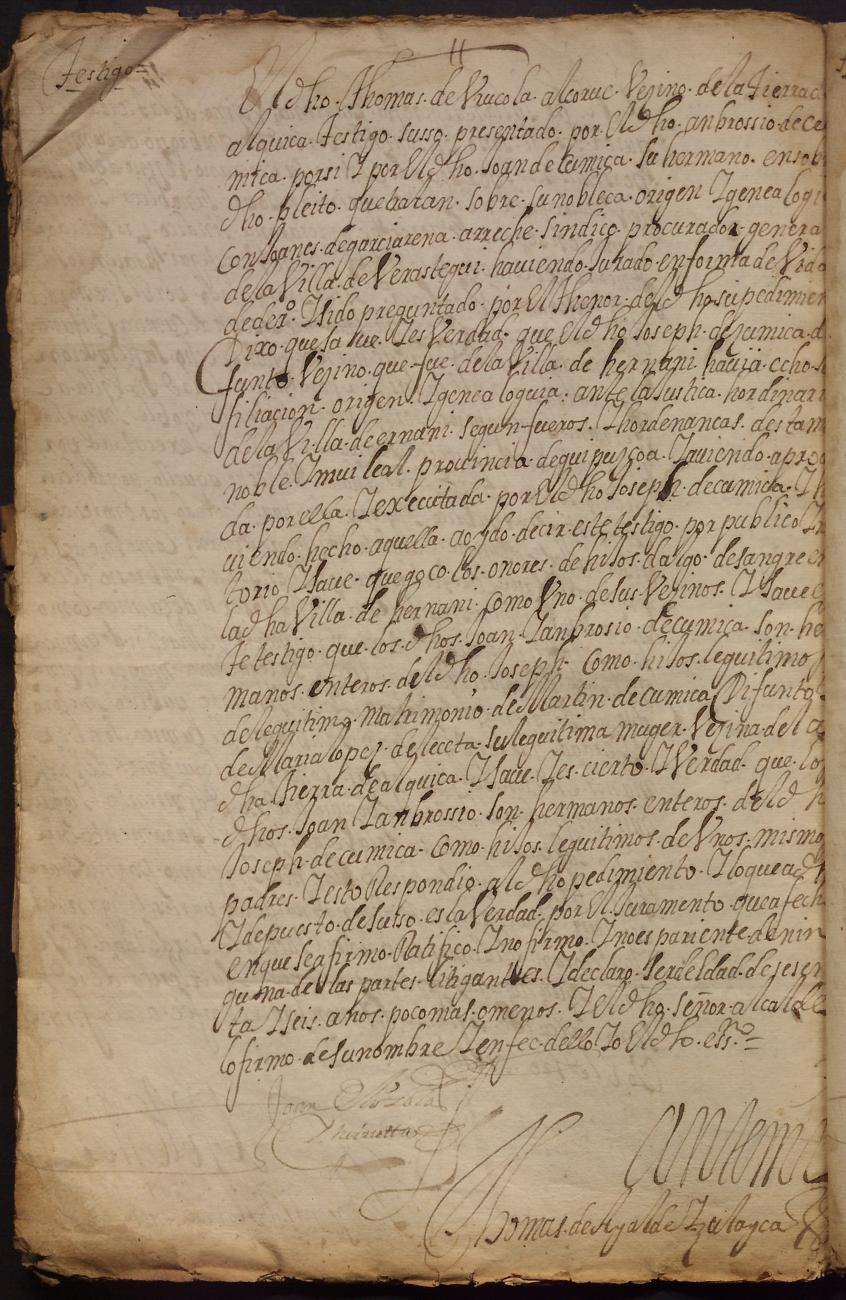 Testigo=
El dho. Thomas. de Vrucola. alcorue. Vezino. de la tierra d
alquica. testigo. susso. presentado. por. El dho. anbrossio. de ce
mica. por si I por El dho. Joan de cumica. su hermano. en so
dho. pleito. que tratan. sobre. su nobleca. origen I genea logi
con Joanes. de garciarena. arreche. sindico. procurador. genera
de la Villa. de Verastegui. hauiendo. Jurado. en forma de Vida
de dero. I sido preguntado. por El thenor. del dho. su pedimien
Dixo. que saue. I es Verdad. que El dho Joseph. de cumica. d
funto. Vezino. que. fue. de la Villa. de hernani. hauia. echo. s
filiacion. origen. I genea loguia. ante la Justica. hordinari
de la Villa. de ernani. segun fueros. I hordenancas. desta m
noble. I mui leal. prouincia. de guipuzcoa. I auiendo. a pro
da. por ella. I executada. por El dho Joseph. de cumica. I h
uiendo. hecho. aquella. a oydo. decir. este testigo. por publico I n
torio I saue. que goco. los. onores. de hijos. dalgo. de sangre en
la dha Villa. de hernani. Como Vno. de sus. Vezinos. I saue e
te testigo. que. los. dhos. Joan. I anbrosio. de cumica. son. he
manos. enteros. del dho. Joseph. Como. hijos. leguitimo
de leguitimo. Matrimonio. de Martin. de cumica Difunto
de Maria lopez. de leceta. su leguitima muger. Vezina. de la
dha tierra. de alquica. I saue. I es. cierto. I Verdad. que. los
dhos. Joan I anbrossio. son. hermanos. enteros. del dh
Joseph. de cumica. Como. hijos. leguitimos. de Vnos. mismo
padres. I esto Respondio. al dho pedimiento. I lo que a d
I depuesto. de suso. es la Verdad. por El. Juramento. que a fech
en que se afirmo. Ratifico. I no firmo. I no es pariente. de nin
guna. de las partes. litigantes. I declaro. ser de edad. de sesen
ta I seis. años. poco mas. o menos. I El dho. señor. alcalde
lo firmo. de su nombre I en fee. dello Io El dho. essno=
Joan
ante mi
Thomas. de Ayalde Zatayca